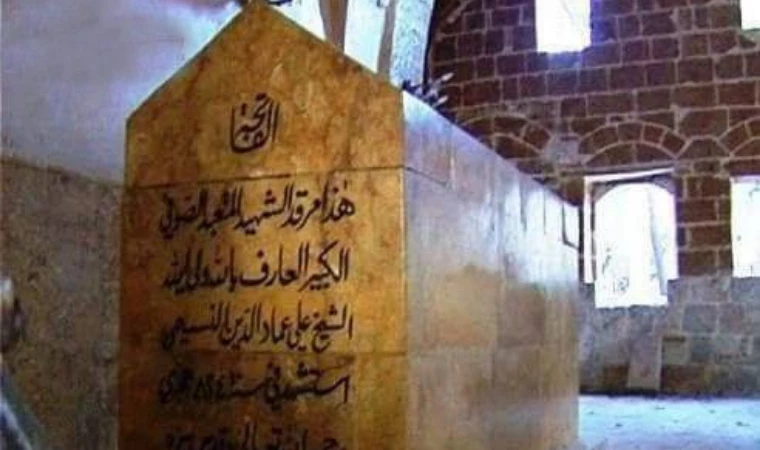 الفاتحة
هذا مرقد الشهيد المتعبد الصوفي
الكبير العارف بالله ولي الله
الشيخ علي عماد الدين النسيمي
استشهد في سنة هجري
تعالى